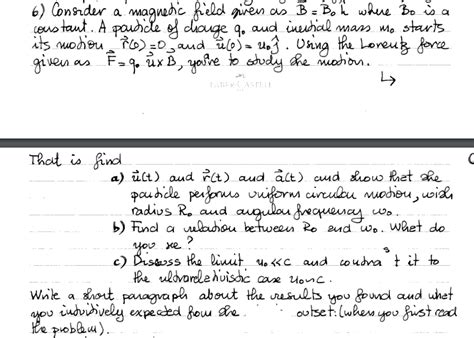 6) Consider a magnetic field given as B⃗ = B₀ k̂ where B₀ is a
constant. A particle of charge q₀ and inertial mass m₀ starts
its motion r⃗(0)=0 and u⃗(0) = u₀ĵ. Using the Lorentz force
given as F⃗ = q₀ u⃗ x B⃗, you're to study the motion.
↳
That is find
a) u⃗(t) and r⃗(t) and a⃗(t) and show that the
particle performs uniform circular motion, with
radius R₀ and angular frequency ω₀.
b) Find a relation between R₀ and ω₀. What do
you see?
c) Discuss the limit u₀<<c and contra t it to
the ultrarelativistic case u₀≈c.
Write a short paragraph about the results you found and what
you intuitively expected from the outset. (when you first read
the problem).